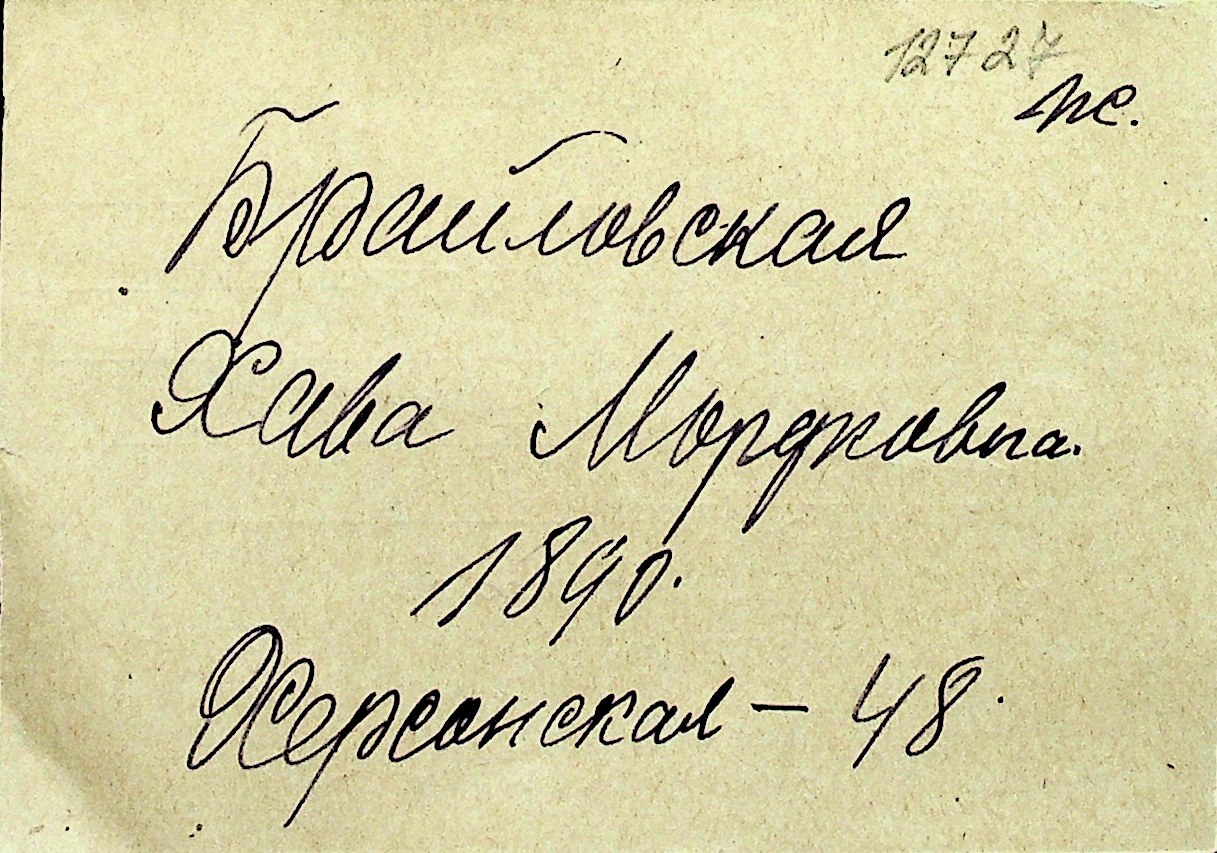 12727
пс.
Браиловская
Хава Мордковна.
1890.
Херсонская — 48.